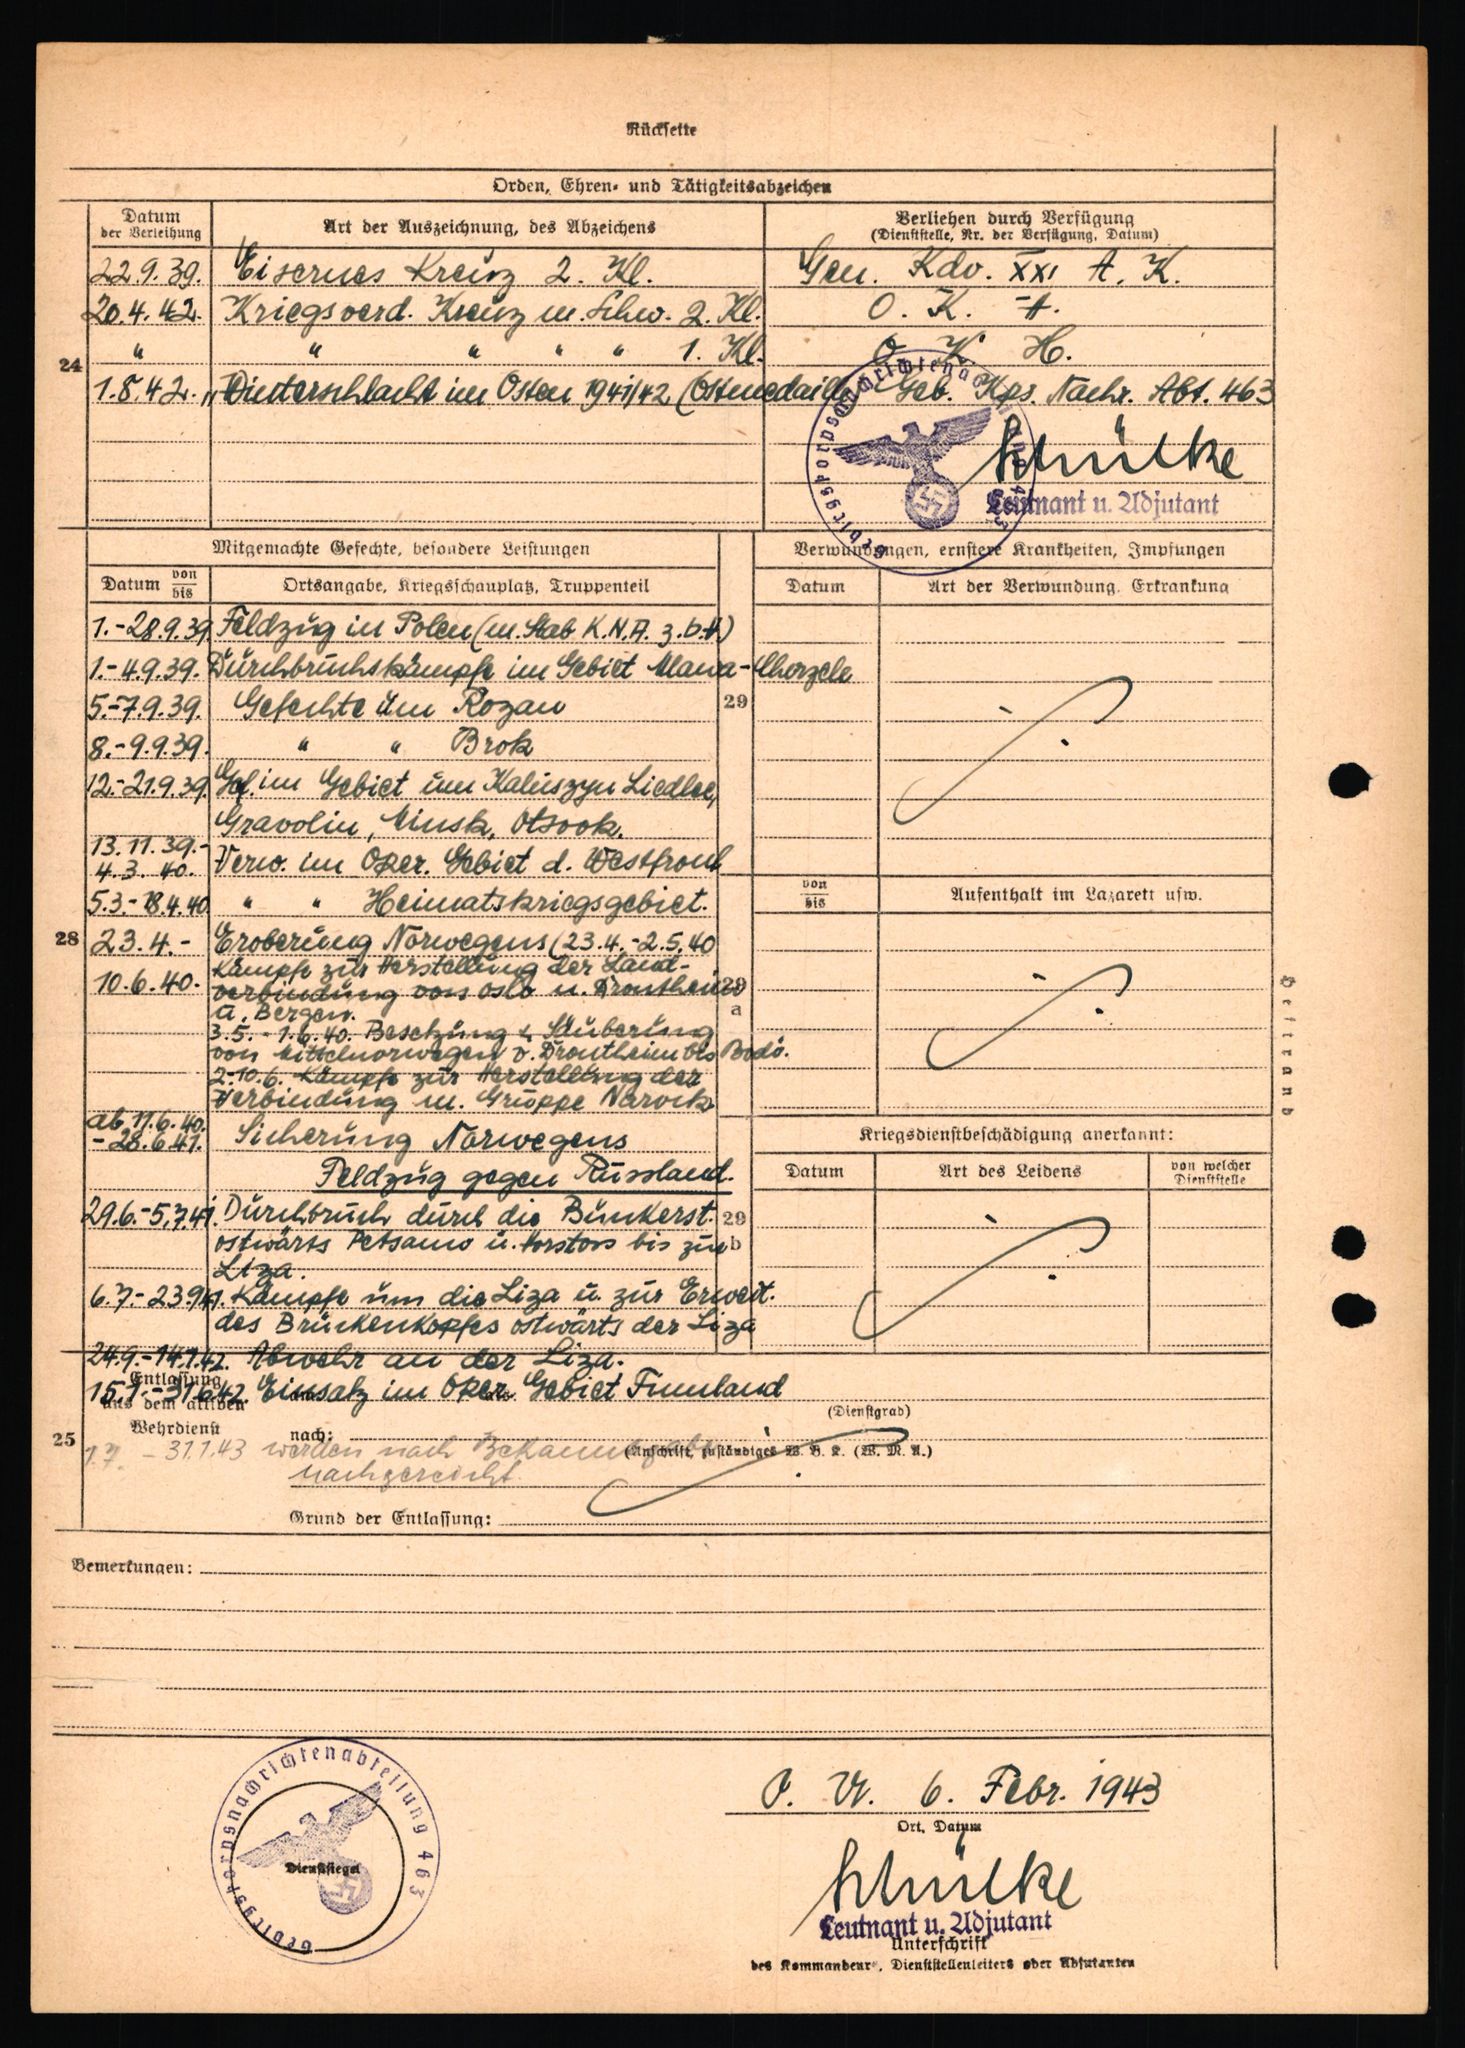 Rückseite
Orden, Ehren- und Tätigkeitsabzeichen
Datum der Verleihung Art der Auszeichnung, des Abzeichens Verliehen durch Verfügung (Dienststelle, Nr. der Verfügung, Datum)
24
22.9.39. Eisernes Kreuz 2. Kl. Gen. Kdo. XXI A. K.
20.4.42. Kriegsverd. Kreuz m. Schw. 2. Kl. O. K. H.
" " " " " 1. Kl. O. K. H.
1.8.42. "Winterschlacht im Osten 1941/42 (Ostmedaille) Geb. Kps. Nachr. Abt. 463
Schülke
Leutnant u. Adjutant
Gebirgskorpsnachrichtenabteilung 463
Mitgemachte Gefechte, besondere Leistungen
Datum von bis Ortsangabe, Kriegsschauplatz, Truppenteil
28
1.-28.9.39. Feldzug in Polen (m. Stab K.N.A. z.b.V.)
1.-4.9.39. Durchbruchskämpfe im Gebiet Mlawa-Chorzele
5.-7.9.39. Gefechte um Rozan
8.-9.9.39. " " Brok
12.-21.9.39. Gef. im Gebiet um Kaluszyn Siedlce,
Gravolin, Minsk, Otwock.
13.11.39.-
4.3.40. Verw. im Oper. Gebiet d. Westfront
5.3.-18.4.40 " " Heimatskriegsgebiet.
23.4.- Eroberung Norwegens (23.4.-2.5.40
10.6.40. Kämpfe zur Herstellung der Land-
verbindung von Oslo u. Drontheim
u. Bergen.
3.5.-1.6.40. Besetzung u. Säuberung
von Mittelnorwegen v. Drontheim bis Bodö.
2.-10.6. Kämpfe zur Herstellung der
Verbindung m. Gruppe Narvik
ab 11.6.40.
-28.6.41. Sicherung Norwegens
Feldzug gegen Russland.
29.6.-5.7.41. Durchbruch durch die Bunkerst.
ostwärts Petsamo u. Vorstoss bis zur
Liza.
6.7.-23.9.41. Kämpfe um die Liza u. zur Erweit.
des Brückenkopfes ostwärts der Liza
24.9.-14.1.42. Abwehr an der Liza.
15.1.-31.6.42. Einsatz im Oper. Gebiet Finnland
Verwundungen, ernstere Krankheiten, Impfungen
Datum Art der Verwundung. Erkrankung
29
von bis Aufenthalt im Lazarett usw.
29 a
Kriegsdienstbeschädigung anerkannt:
Datum Art des Leidens von welcher Dienststelle
29 b
Heftrand
25
Entlassung
aus dem aktiven
Wehrdienst
(Dienstgrad)
nach:
(Anschrift, zuständiges W. B. K. (W. M. A.)
1.7. - 31.1.43 werden nach
nachgereicht
Grund der Entlassung:
Bemerkungen:
Gebirgskorpsnachrichtenabteilung 463
Dienstsiegel
O. U. 6. Febr. 1943
Ort, Datum
Schülke
Leutnant u. Adjutant
Unterschrift
des Kommandeurs, Dienststellenleiters oder Adjutanten